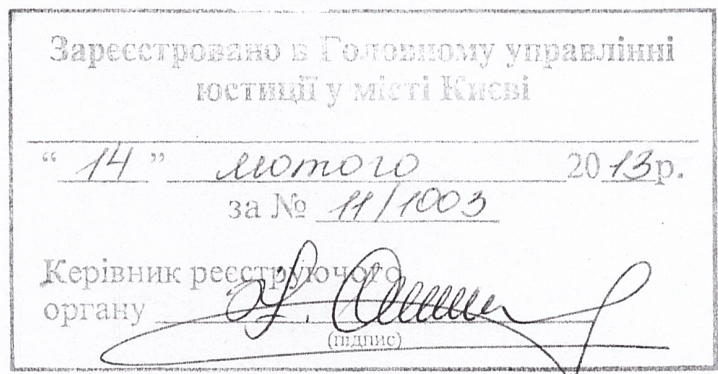 Зареєстровано в Головному управлінні
юстиції у місті Києві
“ 14 ” лютого 2013р.
за № 11/1003
Керівник реєструючого
органу
(підпис)